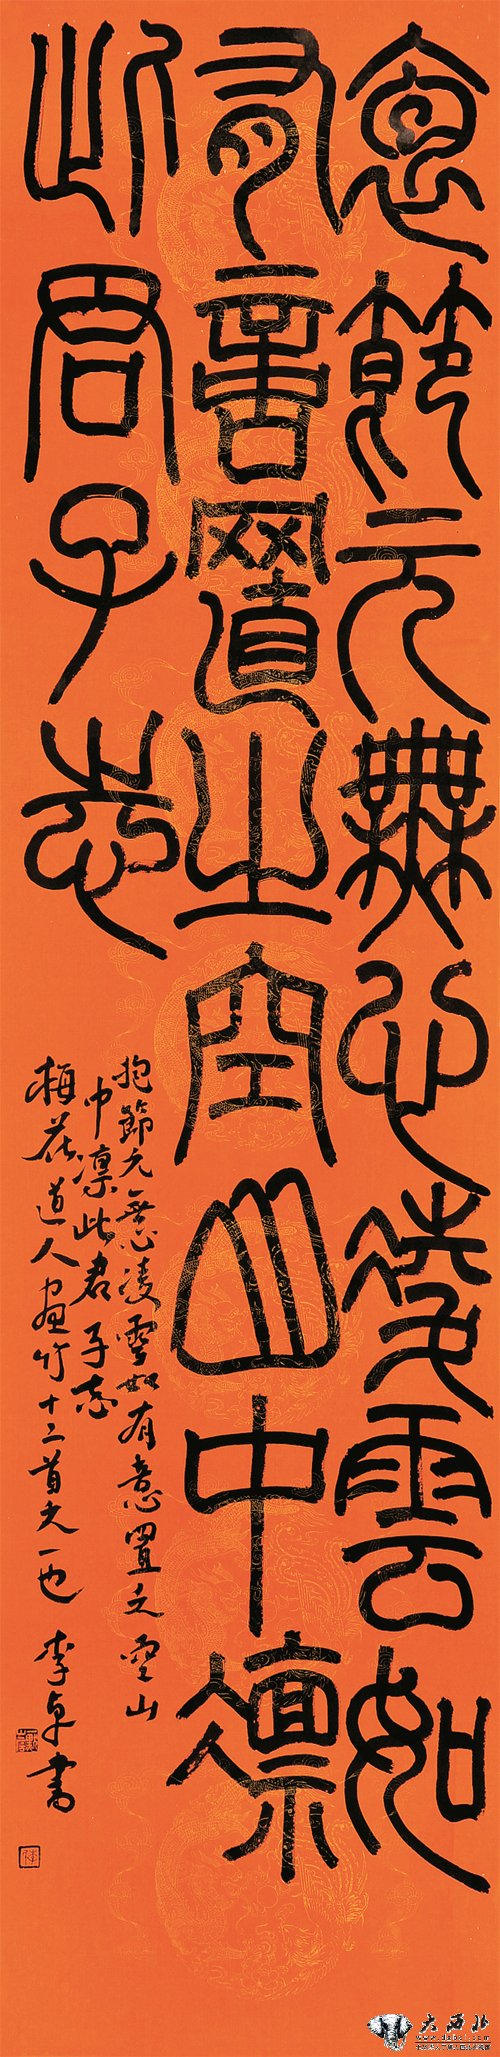 抱節元無心凌雲如
有意置之空山中凛
此君子志
抱節元無心凌雲如有意置之空山
中凛此君子志
梅花道人画竹十二首之一也 李卓書
大西北